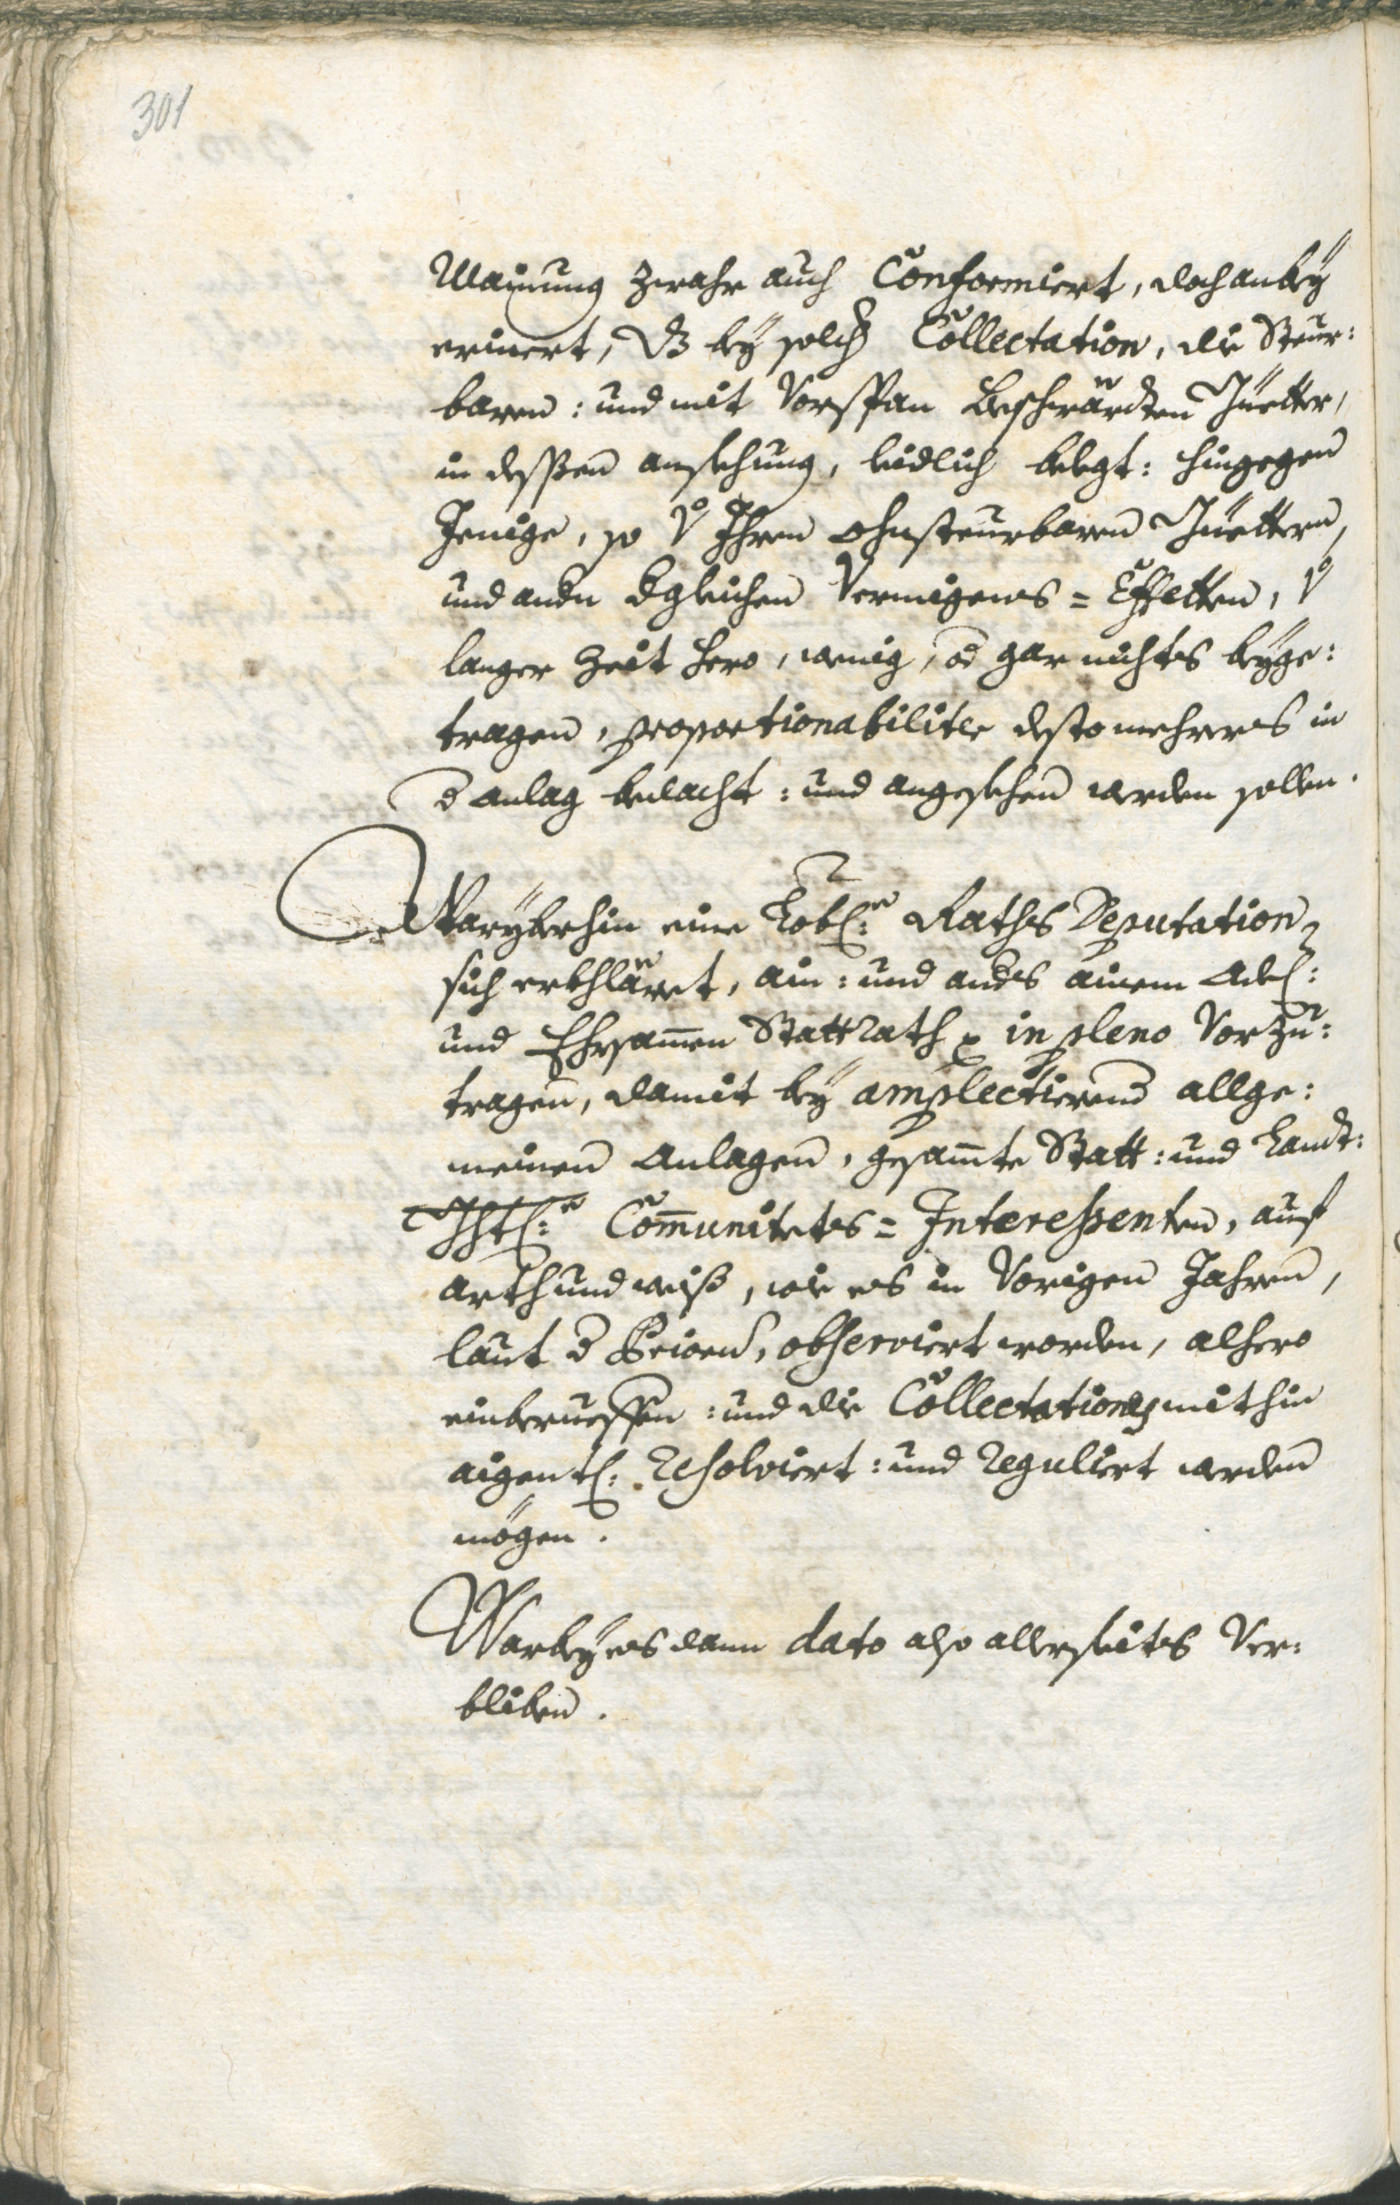 301
Mainung zwahr auch Conformiert, doch anbeÿ
erinert, dz beÿ solch Collectation, die Steur:
baren: und mit Vorspan beschwärdten Güetter,
in dessen ansehung, leidlich belegt: hingegen
Jenige, so v Ihren ohnsteurbaren Güettern,
und andn dgleichen Vermigens=Effetten, v
langer Zeit hero, wenig, od gar nichts beÿge:
tragen, proportionabiliter desto mehrers in
d anlag bedacht: und angesehen werden sollen.
Warÿberhin eine Lobl: Raths Deputation
sich erkhläret, ain: und ands ainem Adel:
und Ehrsamen Stattrath in pleno Vorzu:
tragen, damit beÿ amplectierend allge:
meinen Anlagen, gesamte Statt: und Landt:
Communitets=Interessenten, auf
arth und weiß, wie es in Vorigen Jahren,
laut d observiert worden, alhero
einberueffen: und die Collectation mithin
aigentl: resolviert: und reguliert werden
mögen.
Warbeÿ es dann dato also allerseits Ver:
bliben.